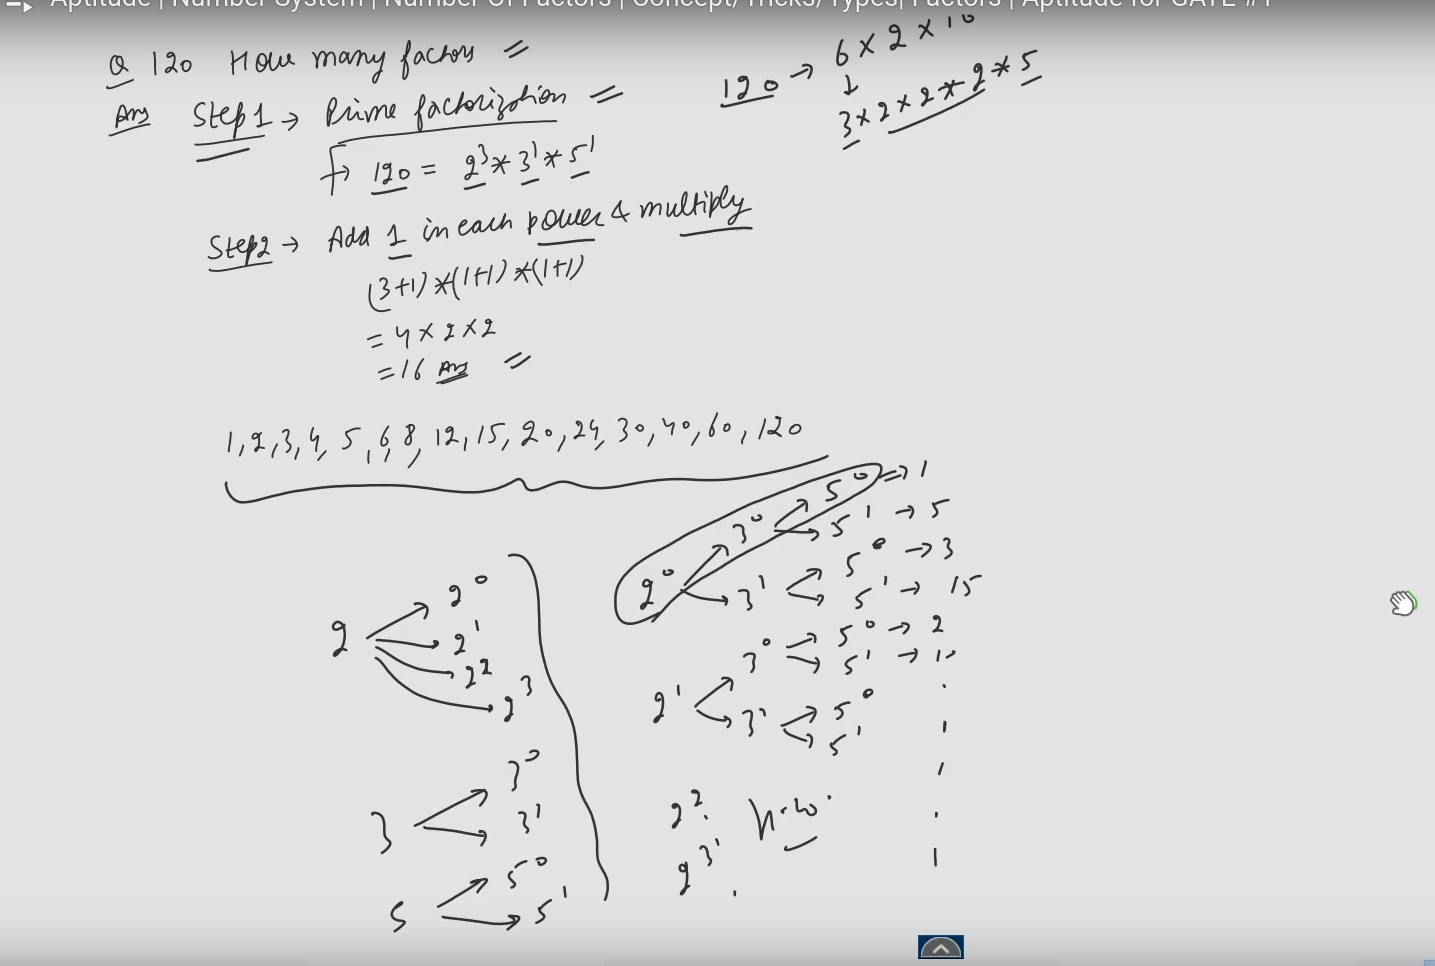 Aptitude | Number System | Number Of Factors | Concept/Tricks/Types| Factors | Aptitude for GATE #1
Q 120 How many factors
Ans Step 1 → Prime factorization
→ 120 = 2^3 * 3^1 * 5^1
Step 2 → Add 1 in each power & multiply
(3+1)*(1+1)*(1+1)
= 4 × 2 × 2
= 16 Ans
120 → 6 × 2 × 10
3 × 2 × 2 * 2 * 5
1, 2, 3, 4, 5, 6, 8, 12, 15, 20, 24, 30, 40, 60, 120
2 2^0
2^1
2^2
2^3
3 3^0
3^1
5 5^0
5^1
2^0 3^0 5^0 ⇒ 1
5^1 → 5
3^1 5^0 → 3
5^1 → 15
2^1 3^0 5^0 → 2
5^1 → 10
3^1 5^0
5^1
2^2
H.W.
2^3